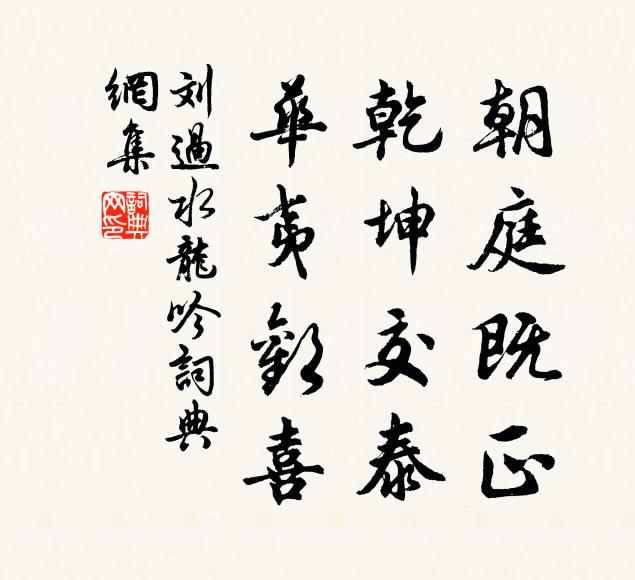 朝庭既正
乾坤交泰
華夷歡喜
刘過水龍吟詞典
網集
詞典
网印